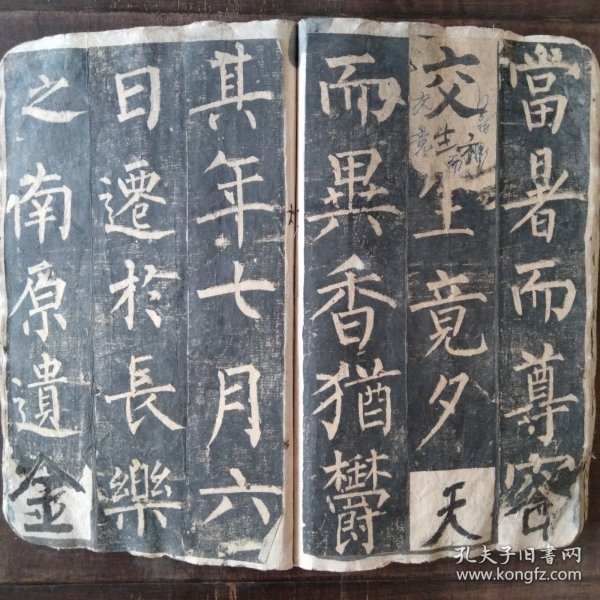 當暑而尊容
交生竟夕天
而異香猶鬱
其年七月六
日遷於長樂
之南原遺金
孔夫子旧书网
www.kongfz.com